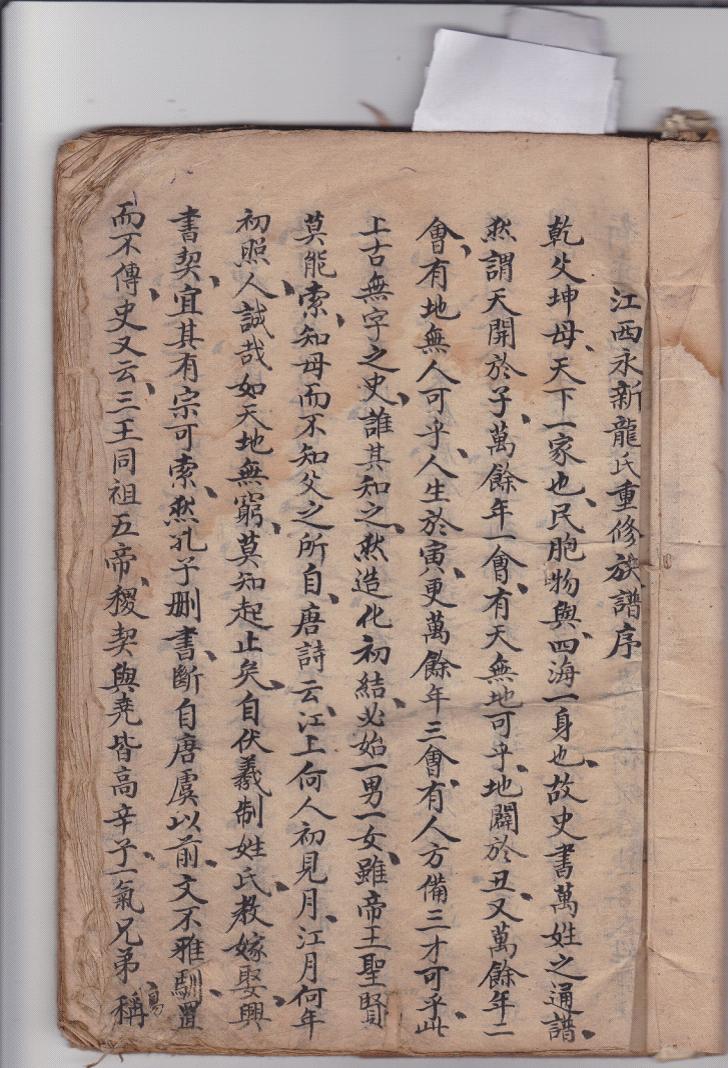 江西永新龍氏重修族譜序
乾父坤母、天下一家也、民胞物與、四海一身也、故史書萬姓之通譜、
然謂天開於子、萬餘年一會、有天無地可乎、地闢於丑、又萬餘年二
會、有地無人可乎、人生於寅、更萬餘年三會、有人方備三才可乎、此
上古無字之史、誰其知之、然造化初結、必始一男一女、雖帝王聖賢
莫能索、知母而不知父之所自、唐詩云、江上何人初見月、江月何年
初照人、誠哉如天地無窮、莫知起止矣、自伏羲制姓氏、教嫁娶、興
書契、宜其有宗可索、然孔子删書、斷自唐虞以前、文不雅馴、置
而不傳、史又云、三王同祖五帝、稷契與堯皆高辛子、一氣兄弟、稱